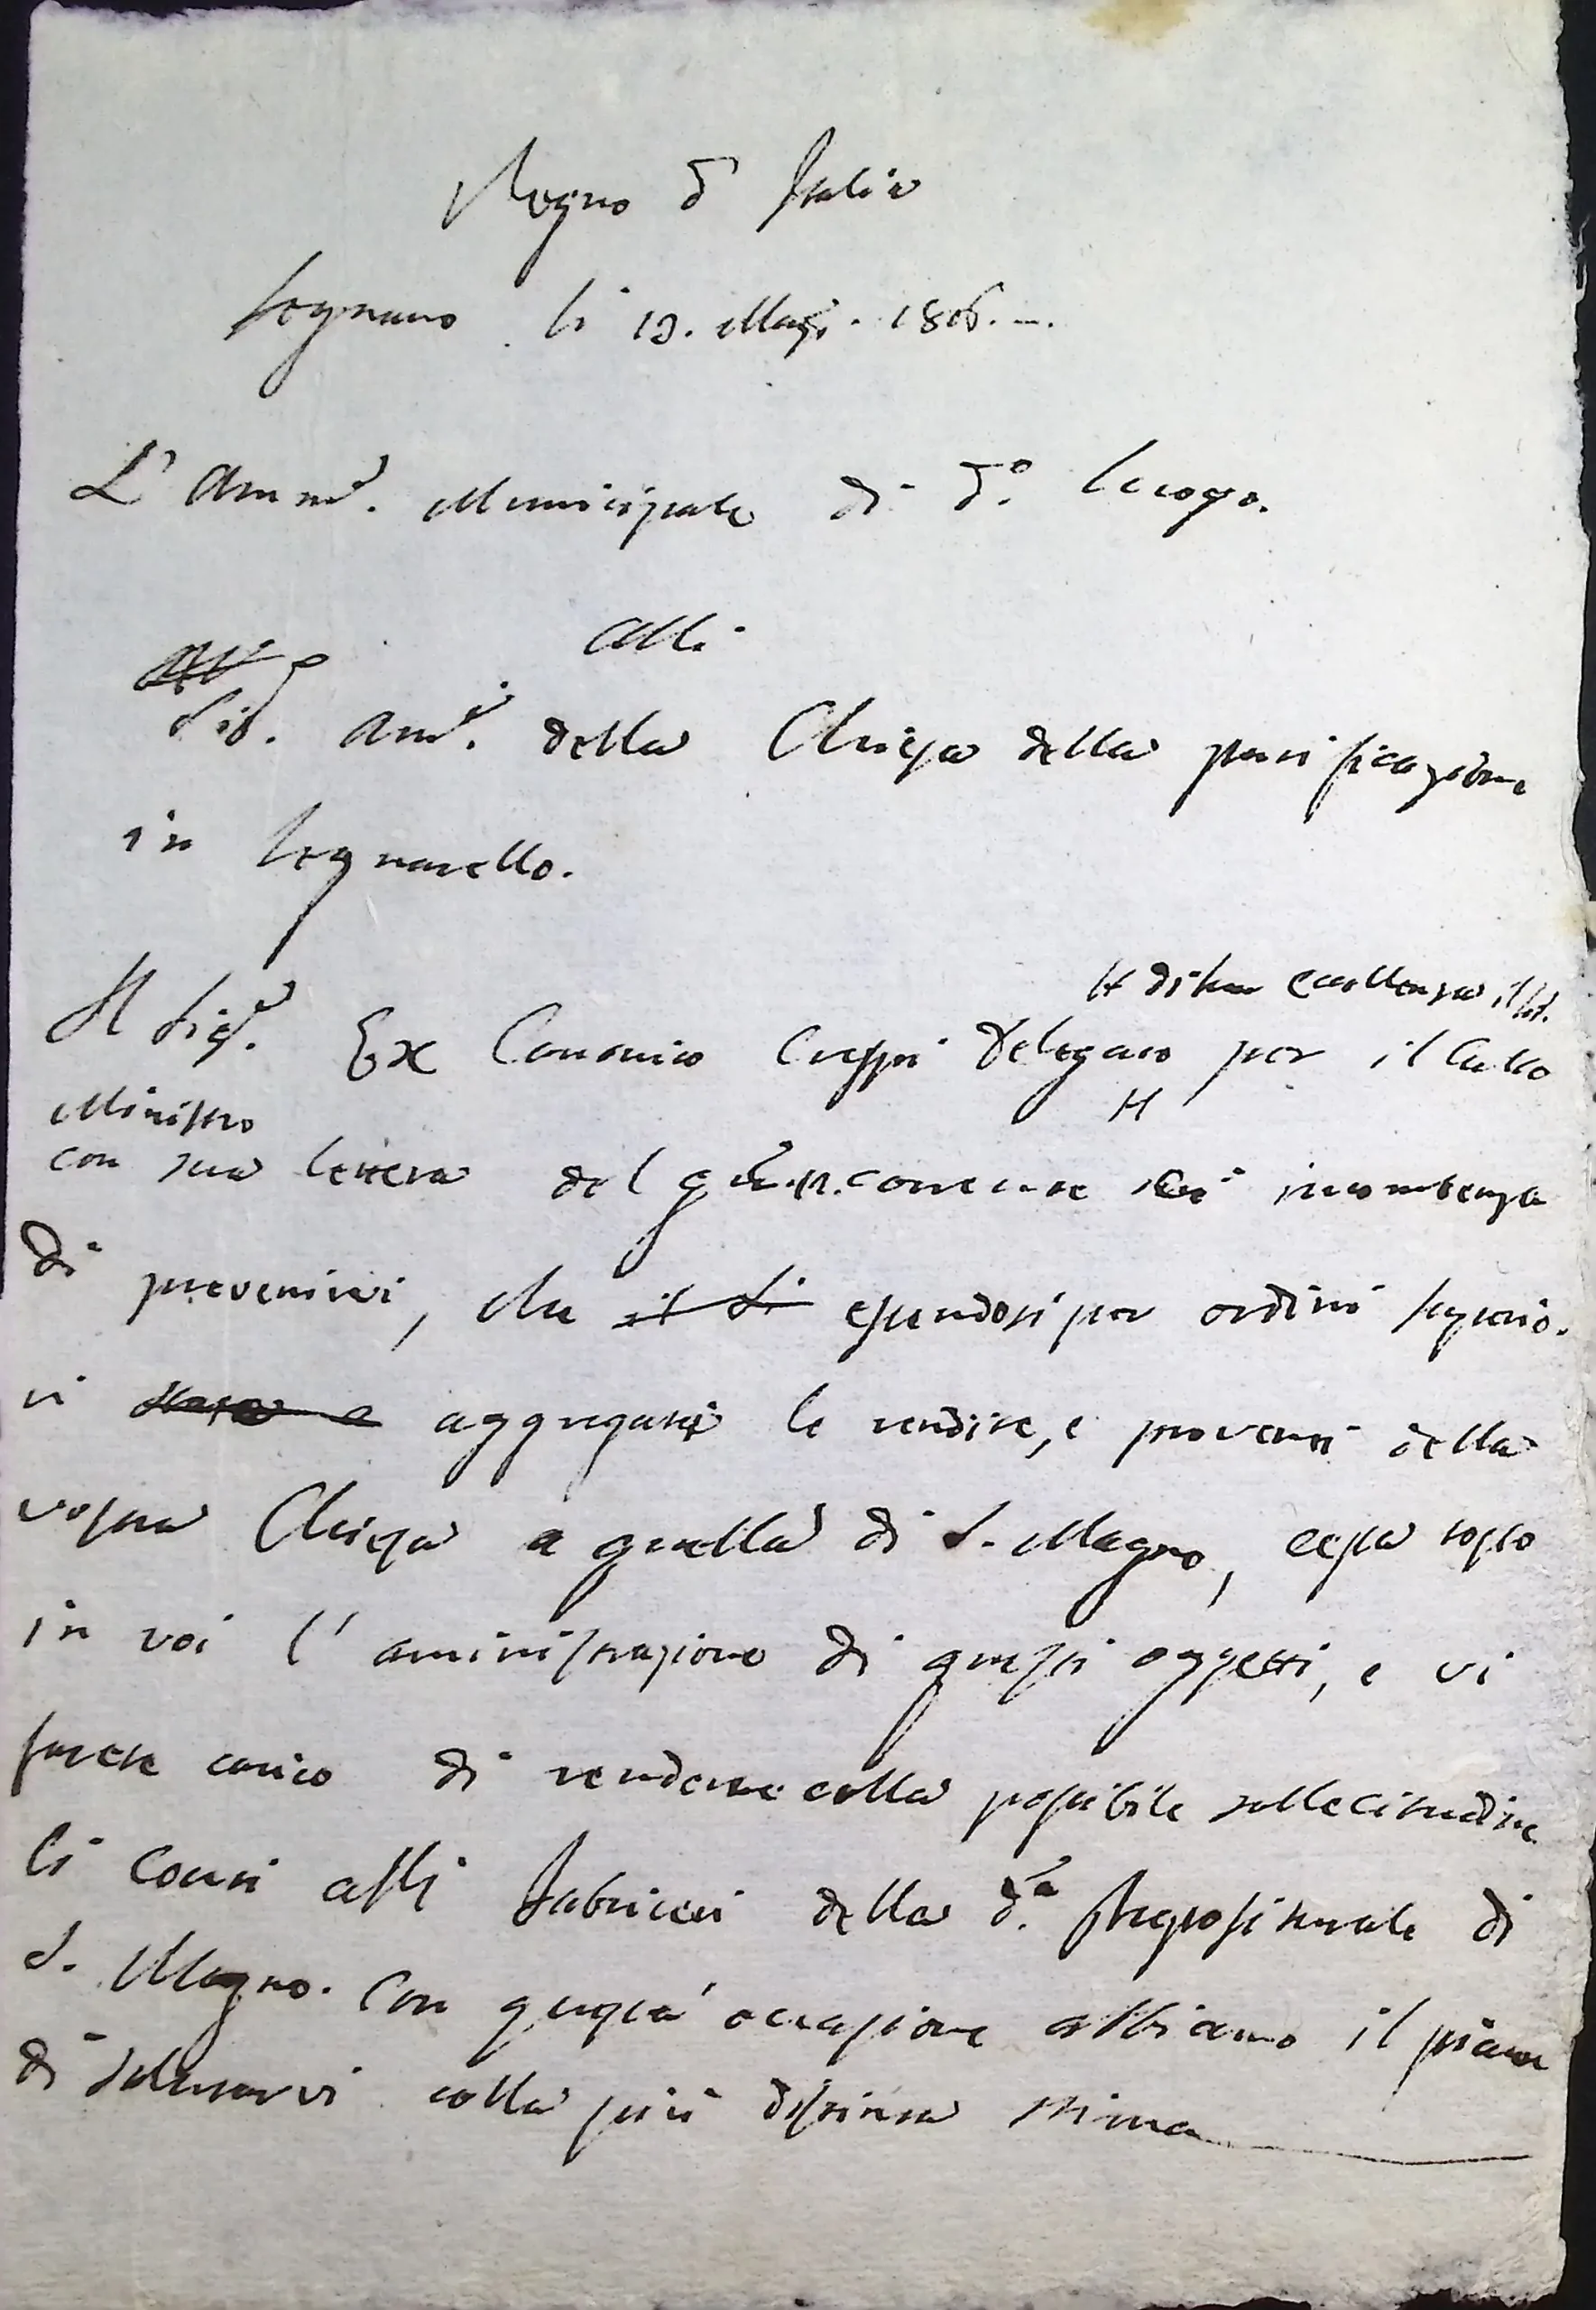 Regno d' Italia
Legnano li 19. Mag. 1806.
L' Amm.e Municipale di d.o Luogo.
Alli
Sig. Am.i della Chiesa della purificazione
in Legnarello.
H di Sua Eccellenza il Sig.
Il Sig.r Ex Canonico Crespi Delegato per il Culto
H
Ministro
con sua lettera del corrente incombenza
di prevenirvi, che il Si essendosi per ordini superio.
ri aggregate le rendite, e proventi della
vostra Chiesa a quella di S. Magno, cessa tosto
in voi l' aministrazione di questi oggetti, e vi
farete carico di rendere colla possibile sollecitudine
li Conti alli Fabricieri della d.a Prepositurale di
S. Magno. Con questa occasione abbiamo il piacer
di salutarvi colla più distinta stima